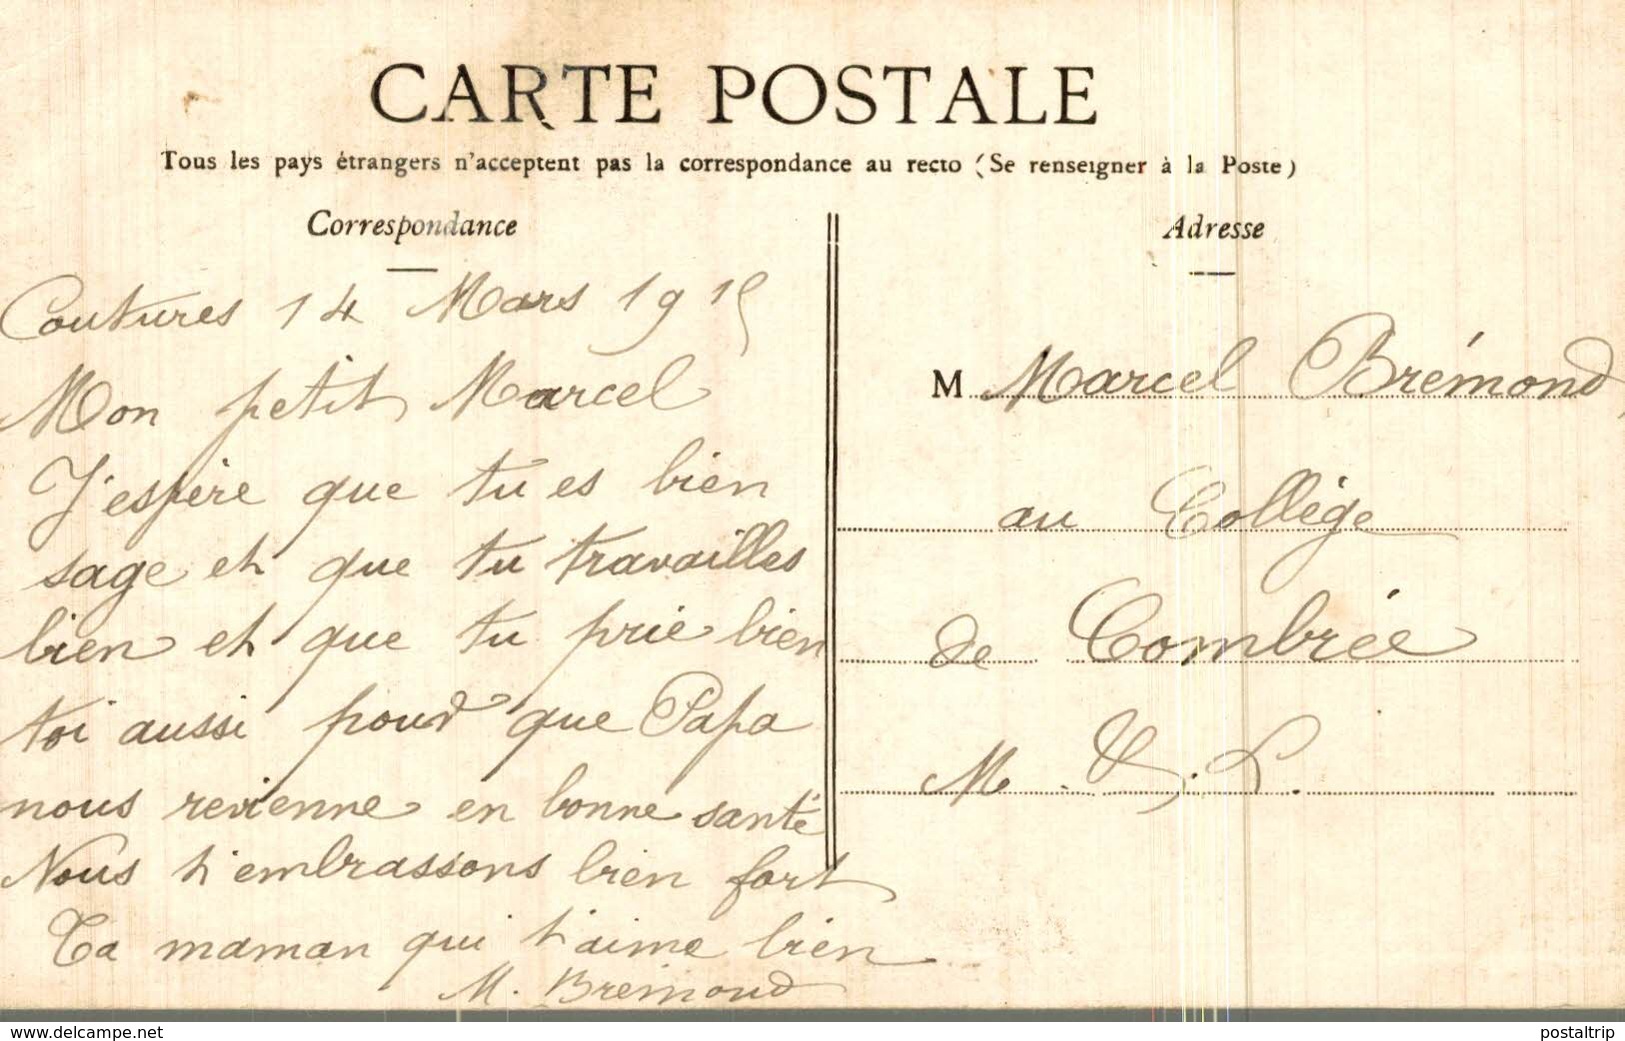 CARTE POSTALE
Tous les pays étrangers n'acceptent pas la correspondance au recto (Se renseigner à la Poste)
Correspondance
Coutures 14 Mars 1915
Mon petit Marcel
J'espère que tu es bien
sage et que tu travailles
bien et que tu prie bien
toi aussi pour que Papa
nous revienne en bonne santé
Nous t'embrassons bien fort
Ta maman qui t'aime bien
M. Bremond
Adresse
M Marcel Brémond
au Collège
de Combrée
M. & L.
www.delcampe.net
postaltrip